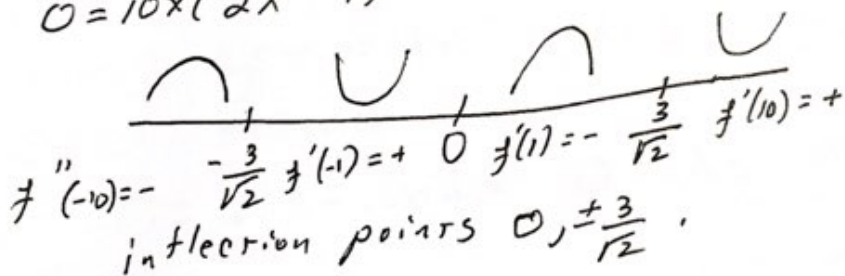 0 = 10x(2x
-3/√2 0 3/√2
f''(-10)=- f'(-1)=+ f'(1)=- f'(10)=+
inflection points 0, ±3/√2 .